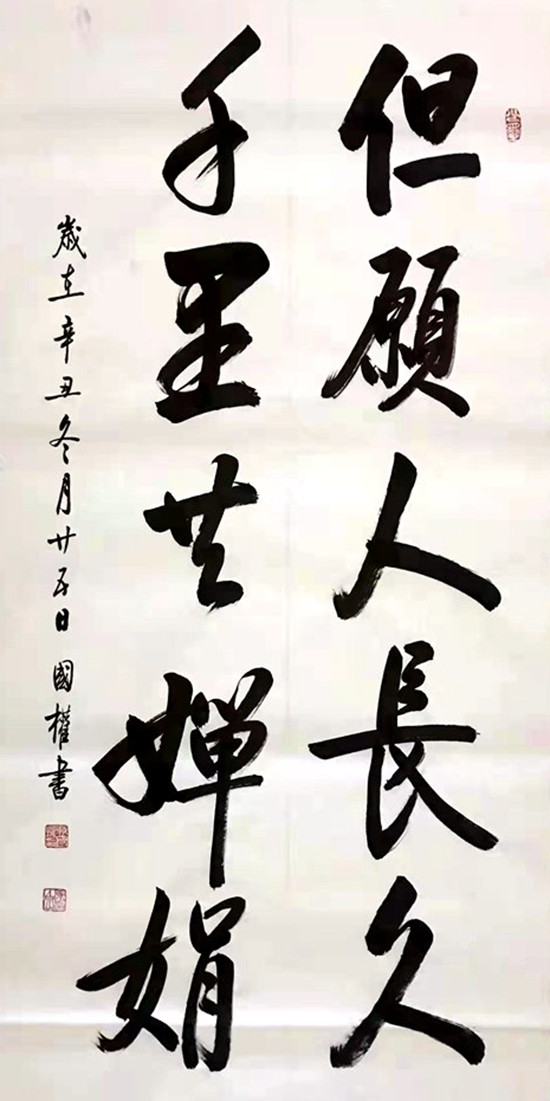 但願人長久
千里共嬋娟
歲在辛丑冬月廿五日國權書